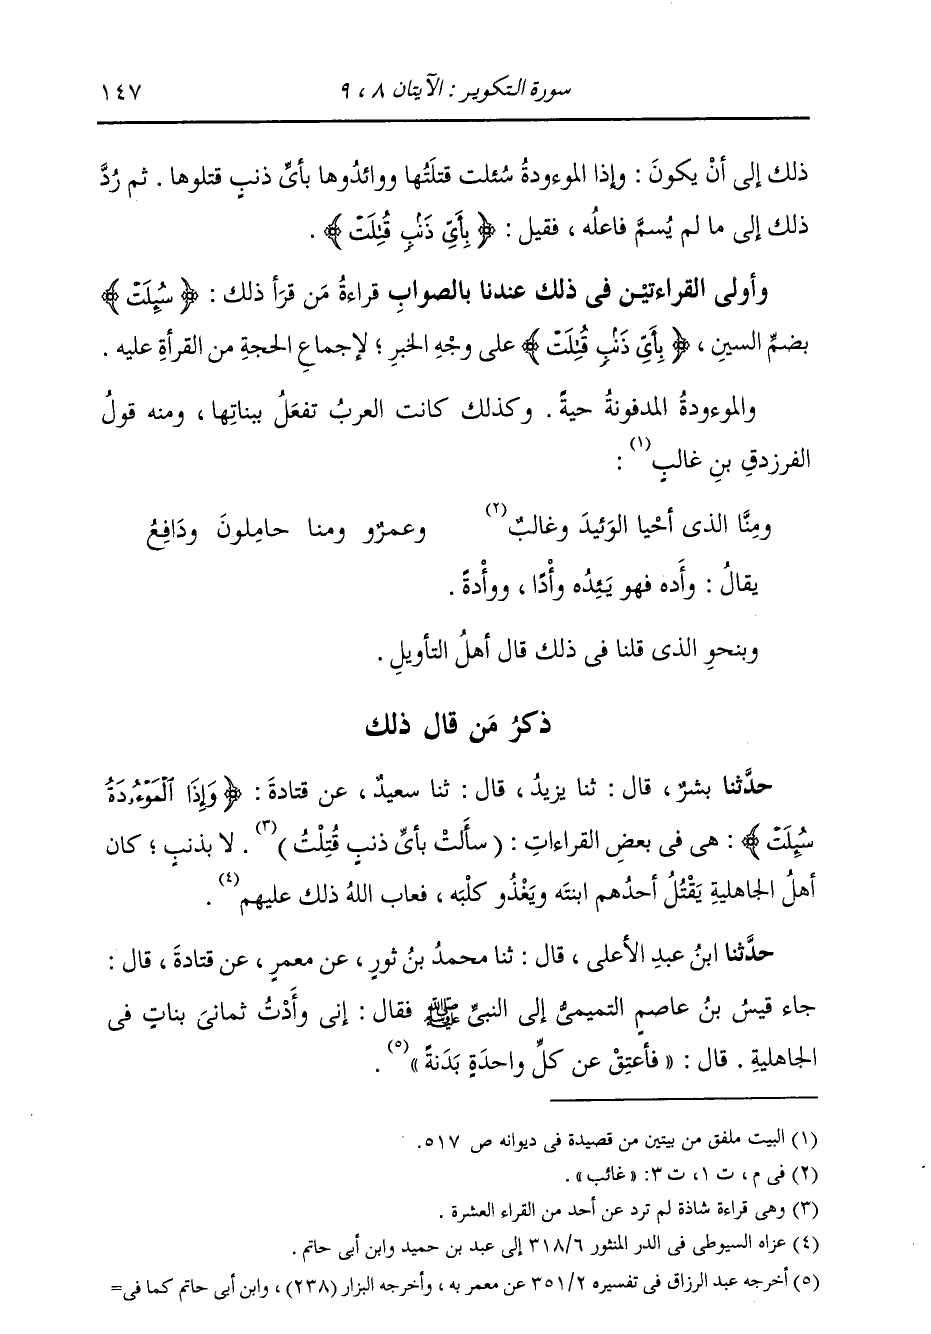 سورة التكوير : الآيتان ٨ ، ٩ ١٤٧
ذلك إلى أنْ يكونَ : وإذا الموءودةُ سُئلت قتلَتُها ووائدُوها بأىِّ ذنبٍ قتلوها . ثم رُدَّ
ذلك إلى ما لم يُسمَّ فاعلُه ، فقيل : ﴿ بِأَيِّ ذَنۢبٍ قُتِلَتْ ﴾ .
وأولى القراءتيْن فى ذلك عندنا بالصوابِ قراءةُ مَن قرَأ ذلك : ﴿ سُئِلَتْ ﴾
بضمِّ السينِ ، ﴿ بِأَيِّ ذَنۢبٍ قُتِلَتْ ﴾ على وجْهِ الخبرِ ؛ لإجماعِ الحجةِ من القرأةِ عليه .
والموءودةُ المدفونةُ حيةً . وكذلك كانت العربُ تفعَلُ ببناتِها ، ومنه قولُ
الفرزدقِ بنِ غالبٍ(١) :
ومِنَّا الذى أحْيا الوَئيدَ وغالبٌ(٢) وعمرٌو ومنا حامِلونَ ودَافِعُ
يقالُ : وأَده فهو يَئِدُه وأْدًا ، ووأْدةً .
وبنحوِ الذى قلنا فى ذلك قال أهلُ التأويلِ .
ذكرُ مَن قال ذلك
حدَّثنا بشرٌ ، قال : ثنا يزيدُ ، قال : ثنا سعيدٌ ، عن قتادةَ : ﴿ وَإِذَا ٱلْمَوْءُۥدَةُ
سُئِلَتْ ﴾ : هى فى بعضِ القراءاتِ : ( سأَلتْ بأىِّ ذنبٍ قُتِلْتُ )(٣) . لا بذنبٍ ؛ كان
أهلُ الجاهليةِ يَقْتُلُ أحدُهم ابنتَه ويَغْذُو كلْبَه ، فعاب اللهُ ذلك عليهم(٤) .
حدَّثنا ابنُ عبدِ الأعلى ، قال : ثنا محمدُ بنُ ثورٍ ، عن معمرٍ ، عن قتادةَ ، قال :
جاء قيسُ بنُ عاصمٍ التميمىُّ إلى النبىِّ ﷺ فقال : إنى وأَدْتُ ثمانىَ بناتٍ فى
الجاهليةِ . قال : « فأعتِقْ عن كلِّ واحدَةٍ بَدَنةً »(٥) .
(١) البيت ملفق من بيتين من قصيدة فى ديوانه ص ٥١٧.
(٢) فى م ، ت ١، ت ٣: « غائب » .
(٣) وهى قراءة شاذة لم ترد عن أحد من القراء العشرة .
(٤) عزاه السيوطى فى الدر المنثور ٣١٨/٦ إلى عبد بن حميد وابن أبى حاتم .
(٥) أخرجه عبد الرزاق فى تفسيره ٣٥١/٢ عن معمر به ، وأخرجه البزار (٢٣٨) ، وابن أبى حاتم كما فى=